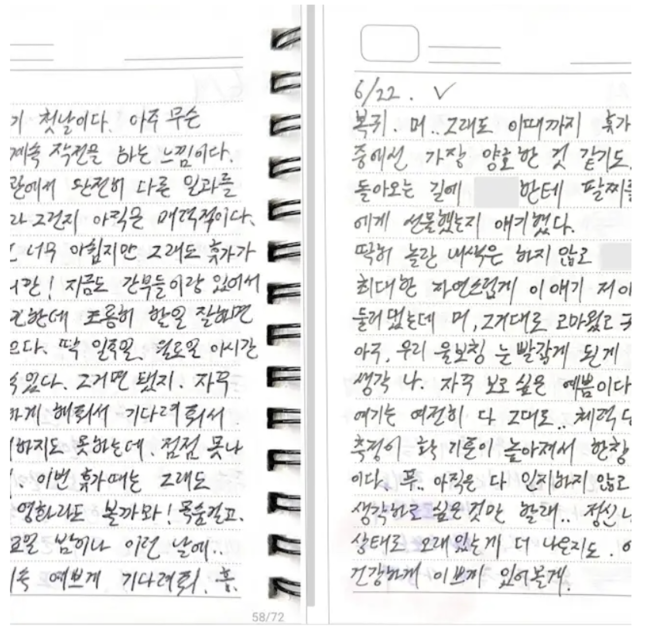 기 첫날이다. 아주 무슨
계속 작전을 하는 느낌이다.
완전히 다른 일과를
라 그런지 아직은 매력적이다.
너무 아쉽지만 그래도 휴가가
! 지금도 간부들이랑 있어서
한데 조용히 할일 잘하면
된다. 딱 일요일, 월요일 아시간
있다. 그거면 됐지. 자꾸
하게 해줘서 기다려줘서
하지도 못하는데. 점점 못나
. 이번 휴가때는 그래도
영화라도 볼까봐! 목숨걸고.
요일 밤이나 이런 날에..
계속 예쁘게 기다려줘. 흥.
58/72
6/22. ✓
복귀. 머.. 그래도 이때까지 휴가
중에선 가장 양호한 것 같기도.
돌아오는 길에 한테 팔찌를
에게 선물했는지 얘기했다.
딱히 놀란 내색은 하지 않고
최대한 자연스럽게 이 얘기 저 이
둘러댔는데 머, 그거대로 고마웠고
아주, 우리 울보침 눈 빨갛게 된게
생각 나. 자꾸 보고 싶은 예쁨이다
여기는 여전히 다 그대로.. 체력
측정이 확 기준이 높아져서 한창
이다. 푸. 아직은 다 인지하지 않고
생각하고 싶은것만 할래.. 정신
상태로 오래있는게 더 나은지도.
건강하게 이쁘게 있어볼게.